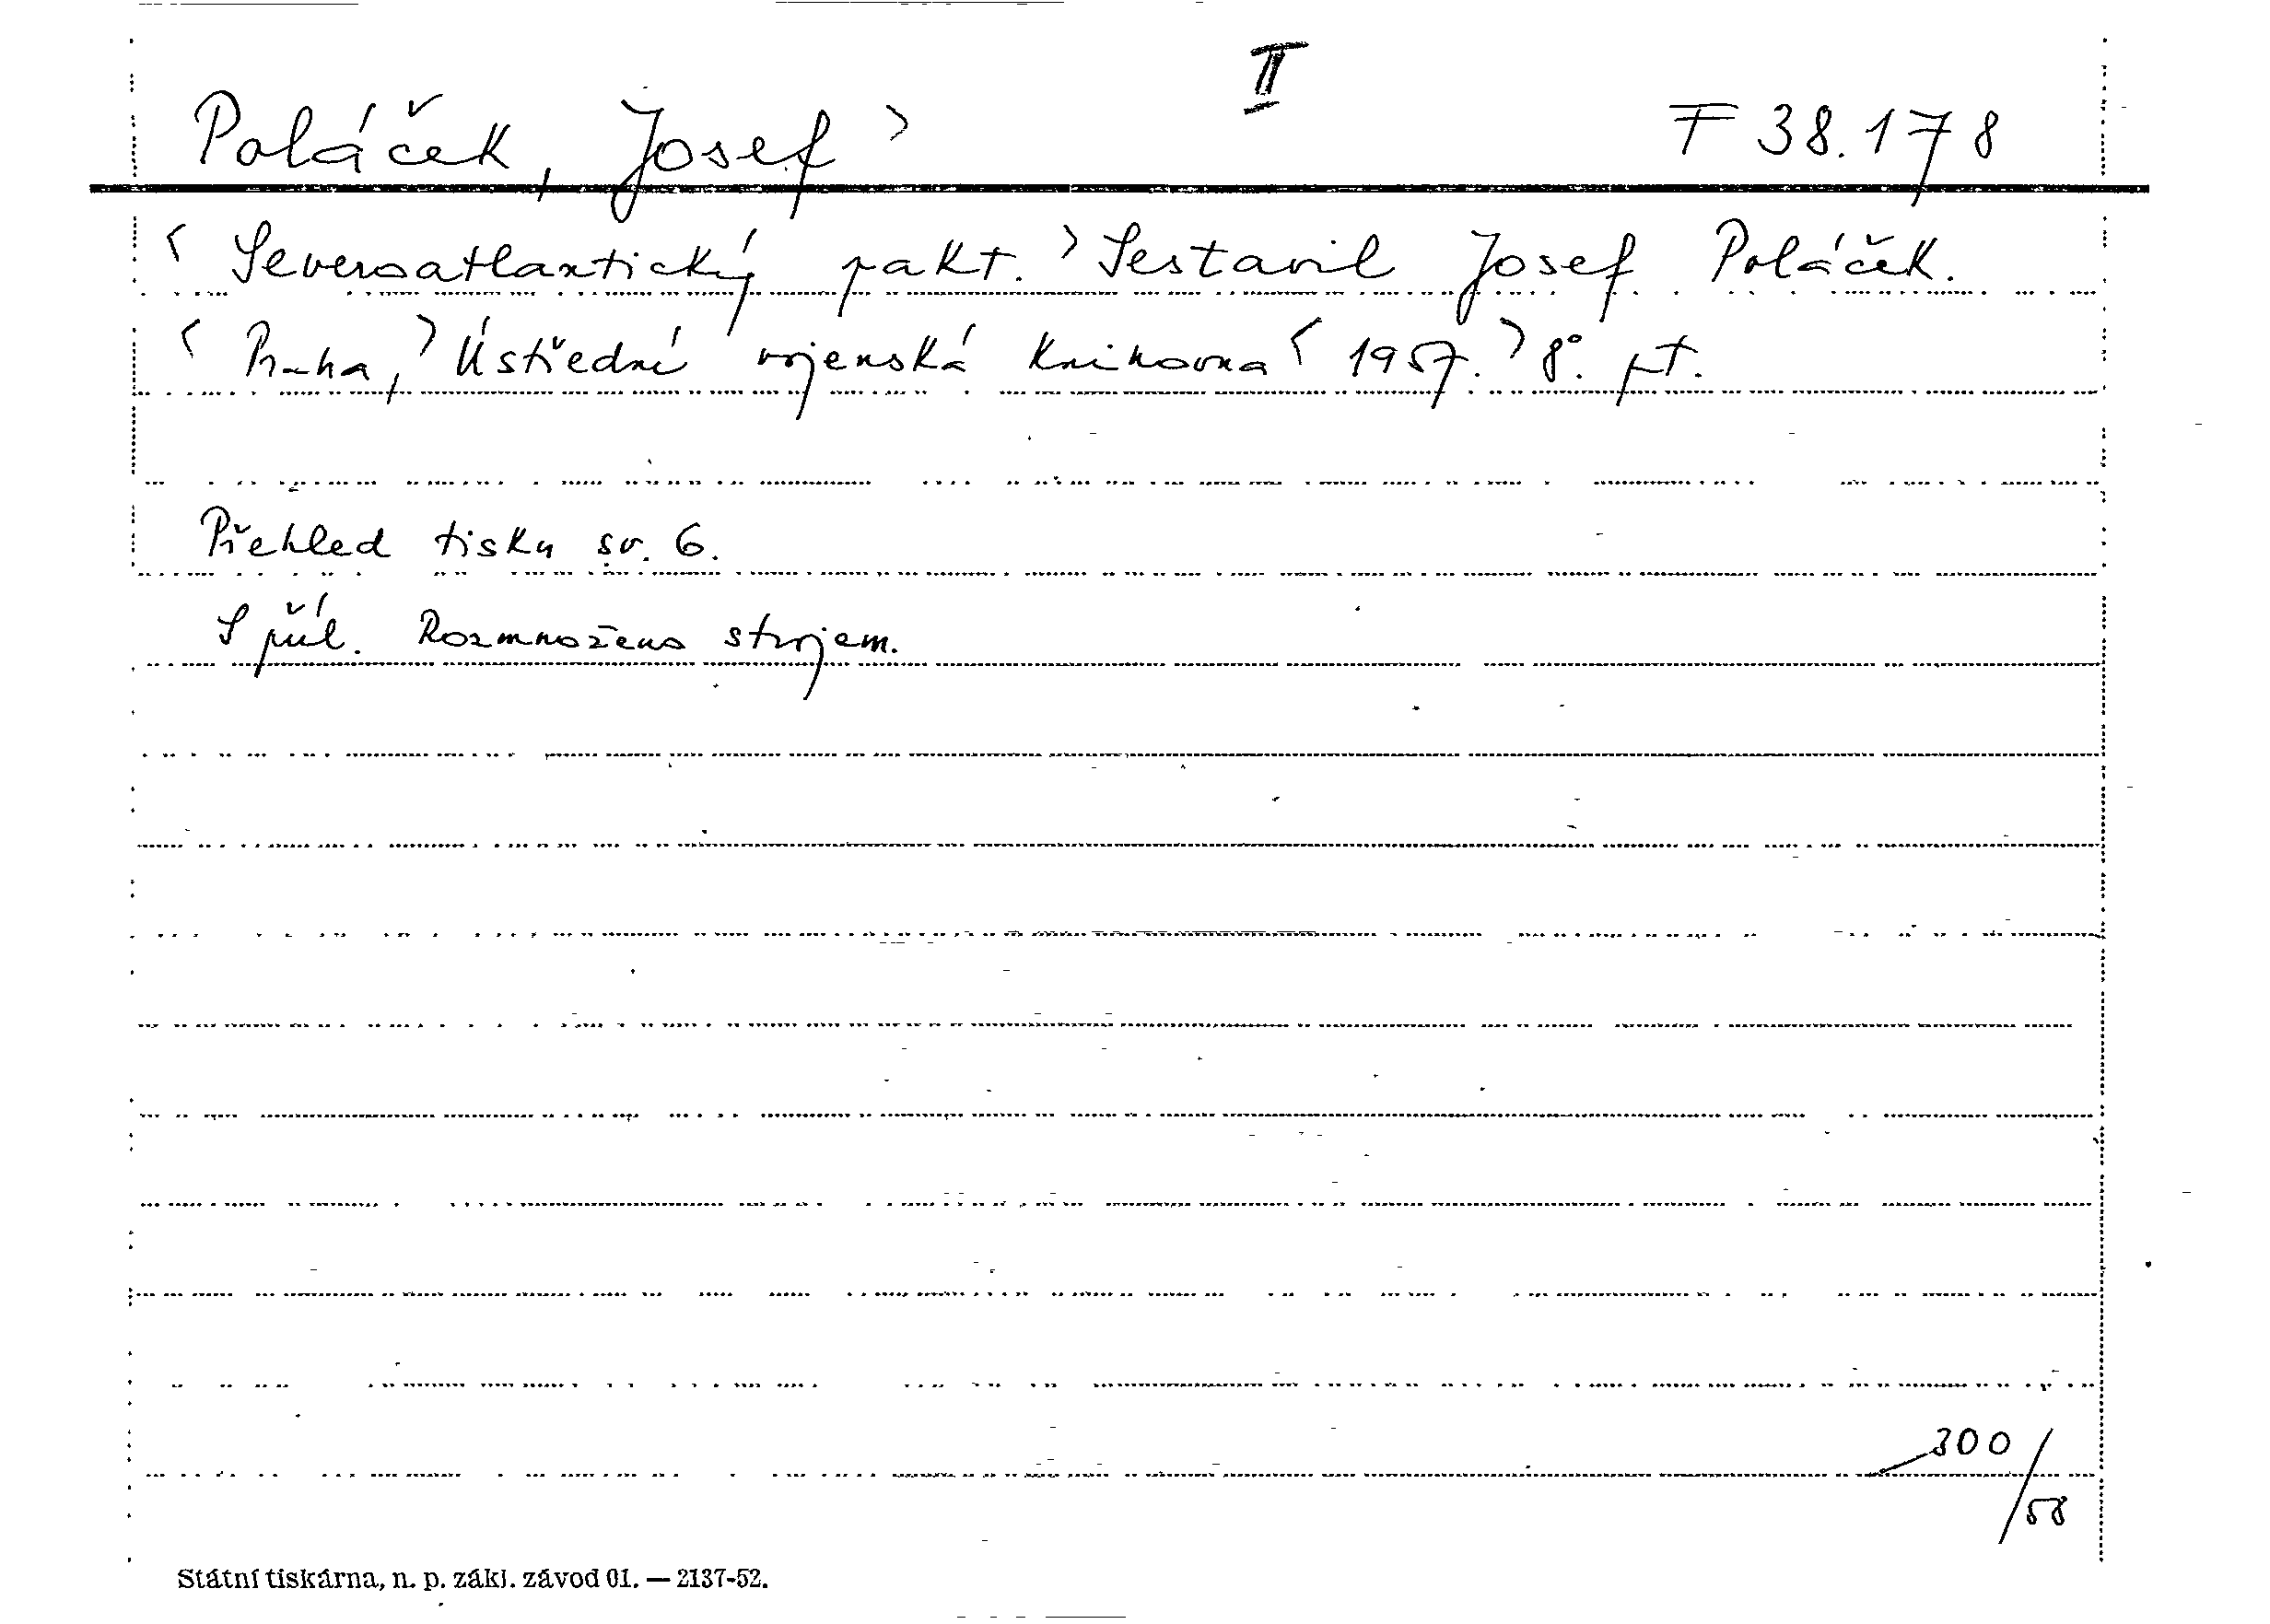 II
Poláček, Josef > F 38.178
< Severoatlantický pakt. > Sestavil Josef Poláček.
< Praha, > Ústřední vojenská knihovna < 1957. > 8°. pt.
Přehled tisku sv. 6.
S příl. Rozmnoženo strojem.
300/58
Státní tiskárna, n. p. zákl. závod 01. — 2137-52.